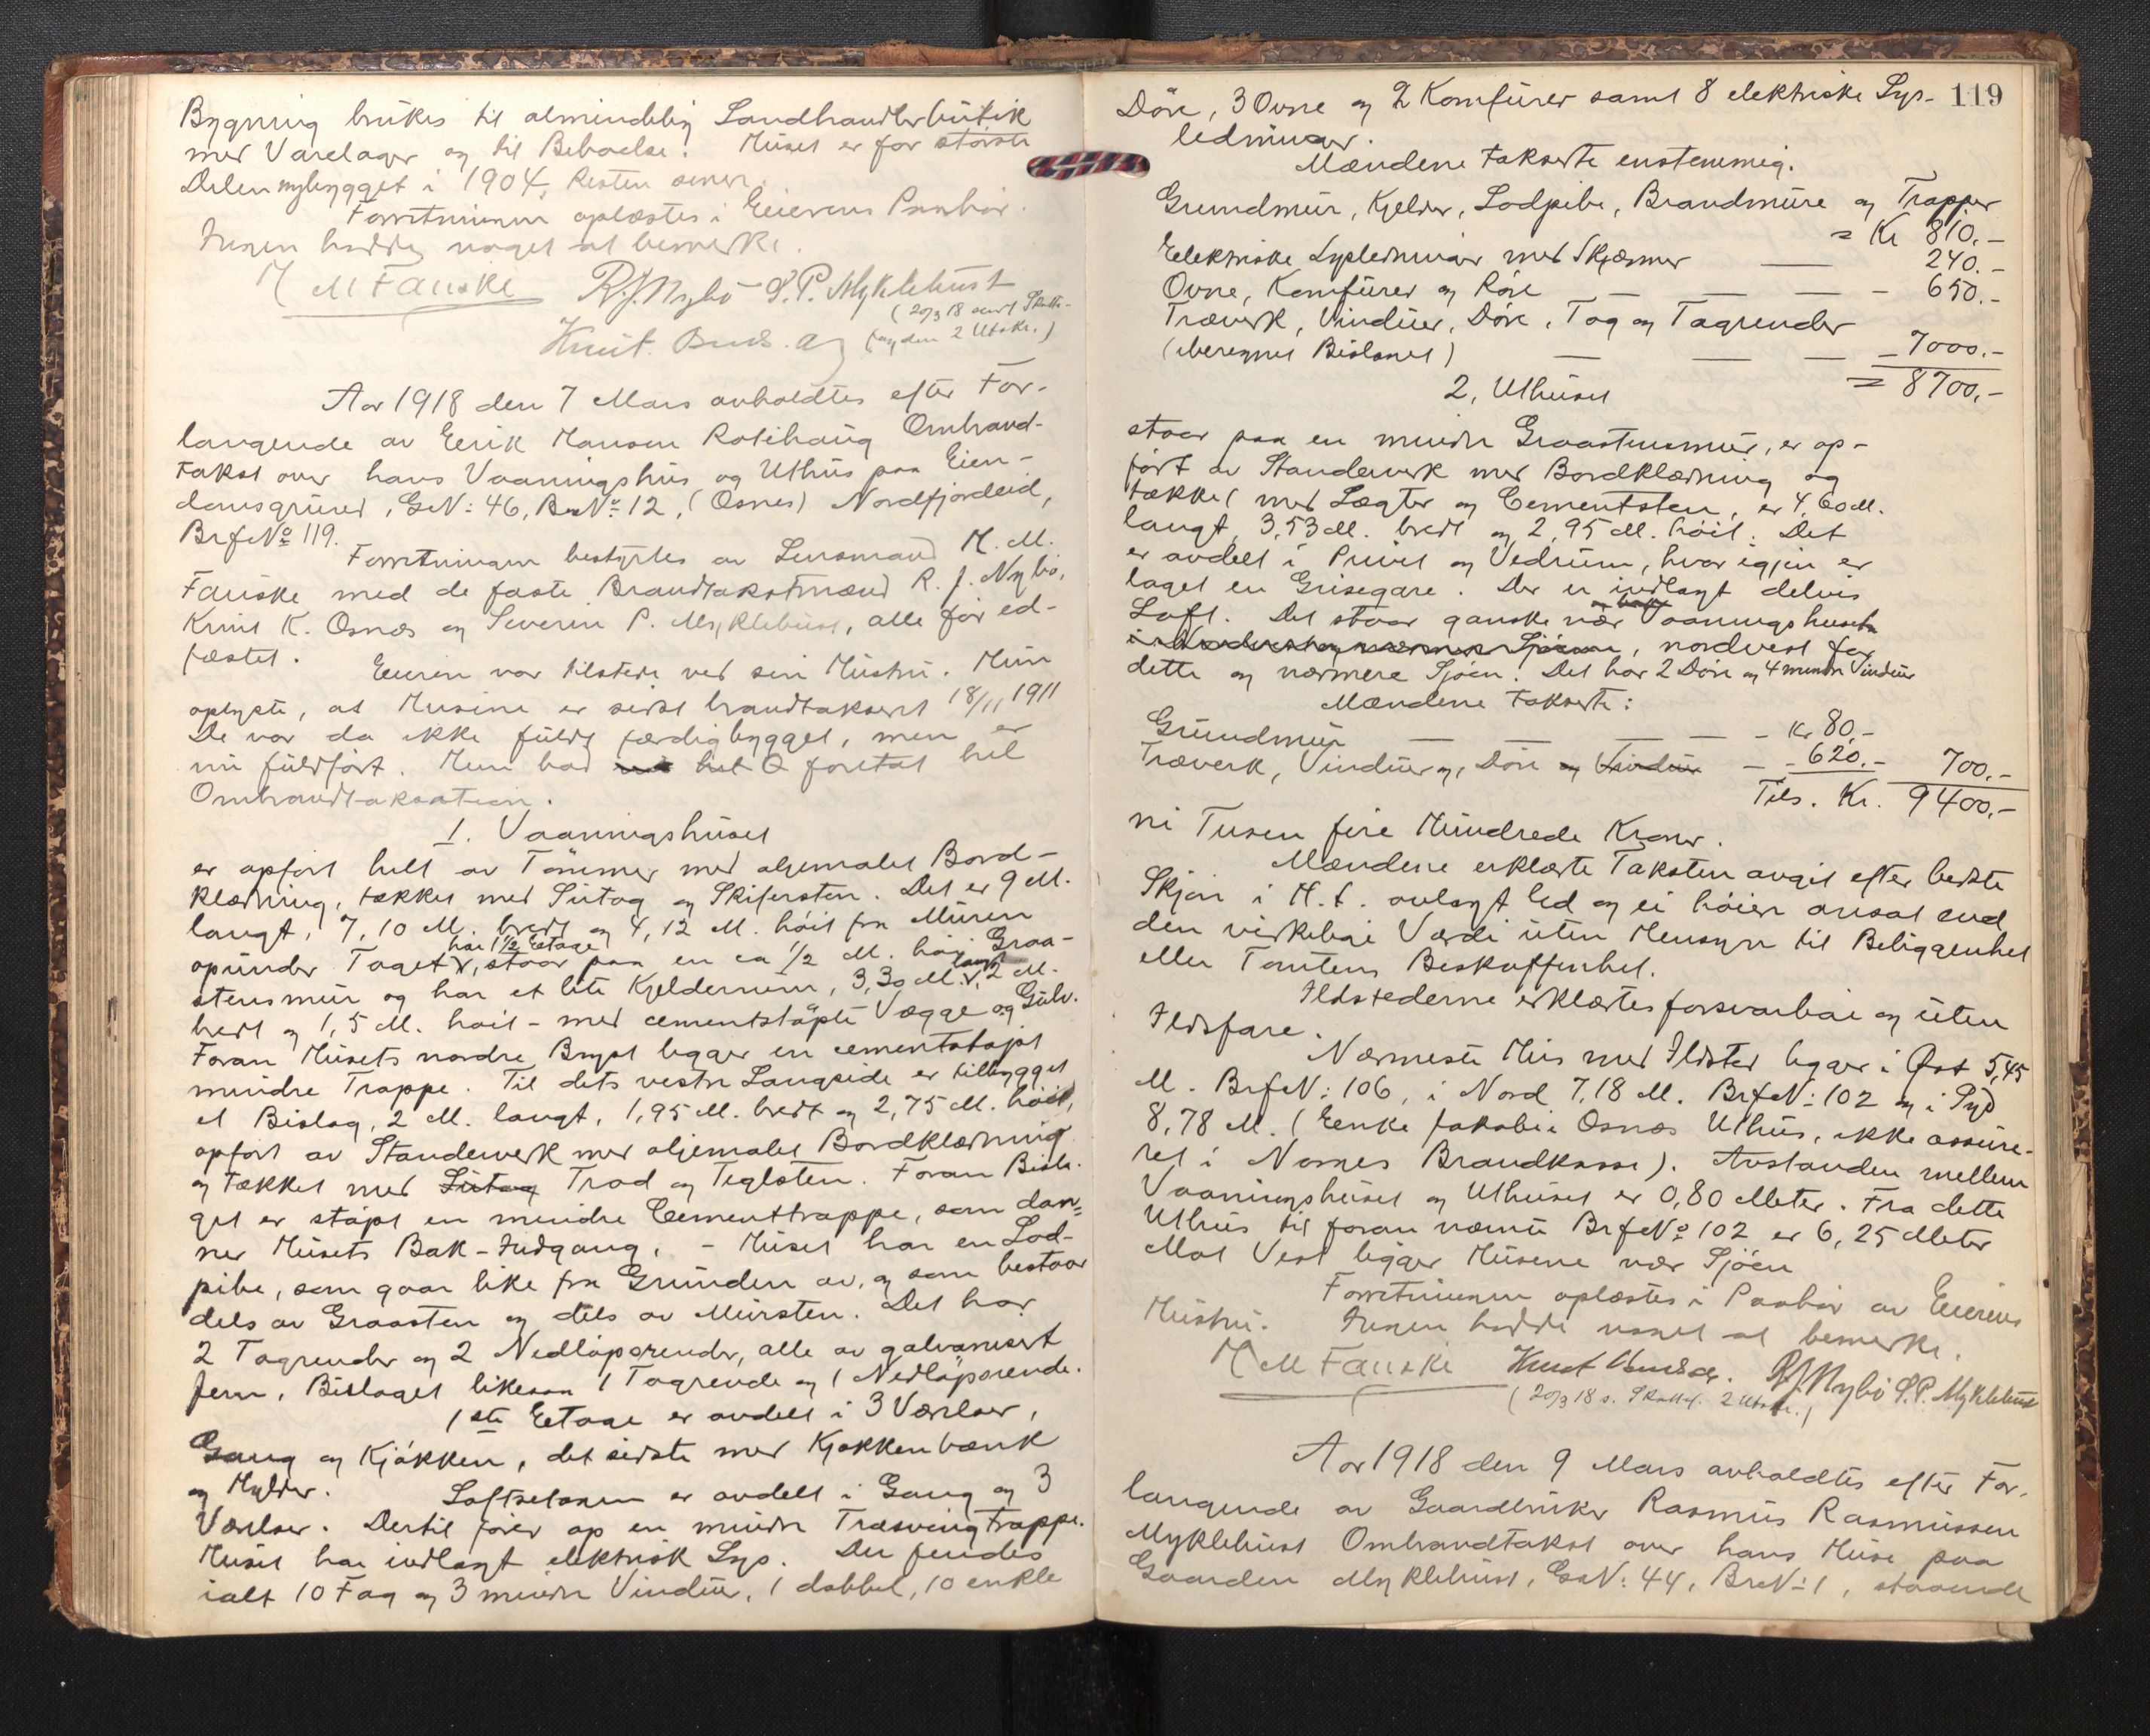 Bygning brukes til almindelig Landhandlerbutik
med Varelager og til Beboelse. Huset er for største
Delen nybygget i 1904, Resten senere.
Forretningen oplæstes i Eierens Paahør.
Ingen hadde noget at bemerke.
M M Fauske R.J. Nybö S. P. Myklebust
(20/3 18 sendt Skatte-
Knut Osnæs (og den 2 Utskr.)
Aar 1918 den 7 Mars avholdtes efter For-
langende av Eerik Hansen Rotihaug Ombrand-
takst over hans Vaaningshus og Uthus paa Eien-
domsgrund, GNo: 46, BrNo: 12, (Osnes) Nordfjordeid,
BrfNo 119.
Forretningen bestyrtes av Lensmand M. M.
Fauske med de faste Brandtakstmænd R. J. Nybö,
Knut K. Osnæs og Severin P. Myklebust, alle før ed-
fæstet.
Eieren var tilstede ved sin Hustru. Hun
oplyste, at Husene er sidst brandtaksert 18/11 1911
De var da ikke fuldt færdigbygget, men er
nu fuldført. Hun bad foretat hel
Ombrandtaksation.
1. Vaaningshuset
er opført helt av Tömmer med oljemalet Bord-
klædning, tækket med Sutag og Skifersten. Det er 9 M.
langt, 7,10 M. bredt og 4,12 M. höit fra Muren
opunder Taget, har 1½ Etage, staar paa en ca ½ M. høi Graa-
stensmur og har et lite Kjelderrum, 3,30 M. langt, 2 M.
bredt og 1,5 M. høit - med cementstøpte Vægge og Gulv.
Foran Husets nordre Bryst ligger en cementstøpt
mindre Trappe. Til dets vestre Langside er tilbygget
et Bislag, 2 M. langt, 1,95 M. bredt og 2,75 M. høit,
opført av Standerverk med oljemalet Bordklædning
og tækket med Sutag Trod og Teglsten. Foran Bisla-
get er støpt en mindre Cementtrappe, som dan=
ner Husets Bak-Indgang. - Huset har en Lod-
pibe, som gaar like fra Grunden av, og som bestaar
dels av Graasten og dels av Mursten. Det har
2 Tagrender og 2 Nedløpsrender, alle av galvanisert
Jern, Bislaget likesaa 1 Tagrende og 1 Nedløpsrende.
1ste Eetage er avdelt i 3 Værelser,
Gang og Kjøkken, det sidste med Kjøkkenbænk
og Hylder. Loftsetagen er avdelt i Gang og 3
Værelser. Dertil fører op en mindre Træsvingtrappe.
Huset har indlagt elektrisk Lys. Der findes
ialt 10 Fag og 3 mindre Vinduer, 1 dobbel, 10 enkle
119
Döre, 3 Ovne og 2 Komfurer samt 8 elektriske Lys-
ledninger.
Mændene takserte enstemmig.
Grundmur, Kjelder, Lodpibe, Brandmure og Trapper
= Kr 810.-
Elektriske Lysledninger med Skjærmer — 240.-
Ovne, Komfurer og Röre — — — - 650.-
Træverk, Vinduer, Döre, Tag og Tagrender
(iberegnet Bislaget) — — — - 7000.-
= 8700,-
2, Uthuset
staar paa en mindre Graastensmur, er op-
ført av Standerverk med Bordklædning og
tækket med Lægter og Cementsten, er 4,60 M.
langt, 3,53 M. bredt og 2,95 M. høit. Det
er avdelt i Privet og Vedrum, hvor igjen er
laget en Grisegare. Der er indlagt delvis
Loft. Det staar ganske nær Vaaningshuset
i Nordvest og nærmere Sjöen, nordvest for
dette og nærmere Sjöen. Det har 2 Döre og 4 mindre Vinduer
Mændene takserte:
Grundmur — — — - Kr 80,-
Træverk, Vinduer og Döre og Vinduer — - 620.- 700,-
Tils. Kr. 9400,-
ni Tusen fire Hundrede Kroner.
Mændene erklærte Taksten avgit efter bedste
Skjøn i H. t. avlagt Ed og ei høiere ansat end
den virkelige Værdi uten Hensyn til Beliggenhet
eller Tomtens Beskaffenhet.
Ildstederne erklærtes forsvarlige og uten
Ildsfare.
Nærmeste Hus med Ildsted ligger i Øst 5,45
M. BrfNo: 106, i Nord 7,18 M. BrfNo: 102 og i Syd
8,78 M. (Eenke Jakobie Osnæs Uthus, ikke assure-
ret i Norges Brandkasse). Avstanden mellem
Vaaningshuset og Uthuset er 0,80 Meter. Fra dette
Uthus til foran nævnte BrfNo 102 er 6,25 Meter
Mot Vest ligger Husene nær Sjöen
Forretningen oplæstes i Paahör av Eierens
Hustru. Ingen hadde noget at bemerke.
M M Fauske Knut Osnæs. R.J. Nybö S. P. Myklebust
(20/3 18 s. Skattef. 2 Utskr.)
Aar 1918 den 9 Mars avholdtes efter For-
langende av Gaardbruker Rasmus Rasmussen
Myklebust Ombrandtakst over hans Huse paa
Gaarden Myklebust, GNo: 44, BrNo: 1, staaende